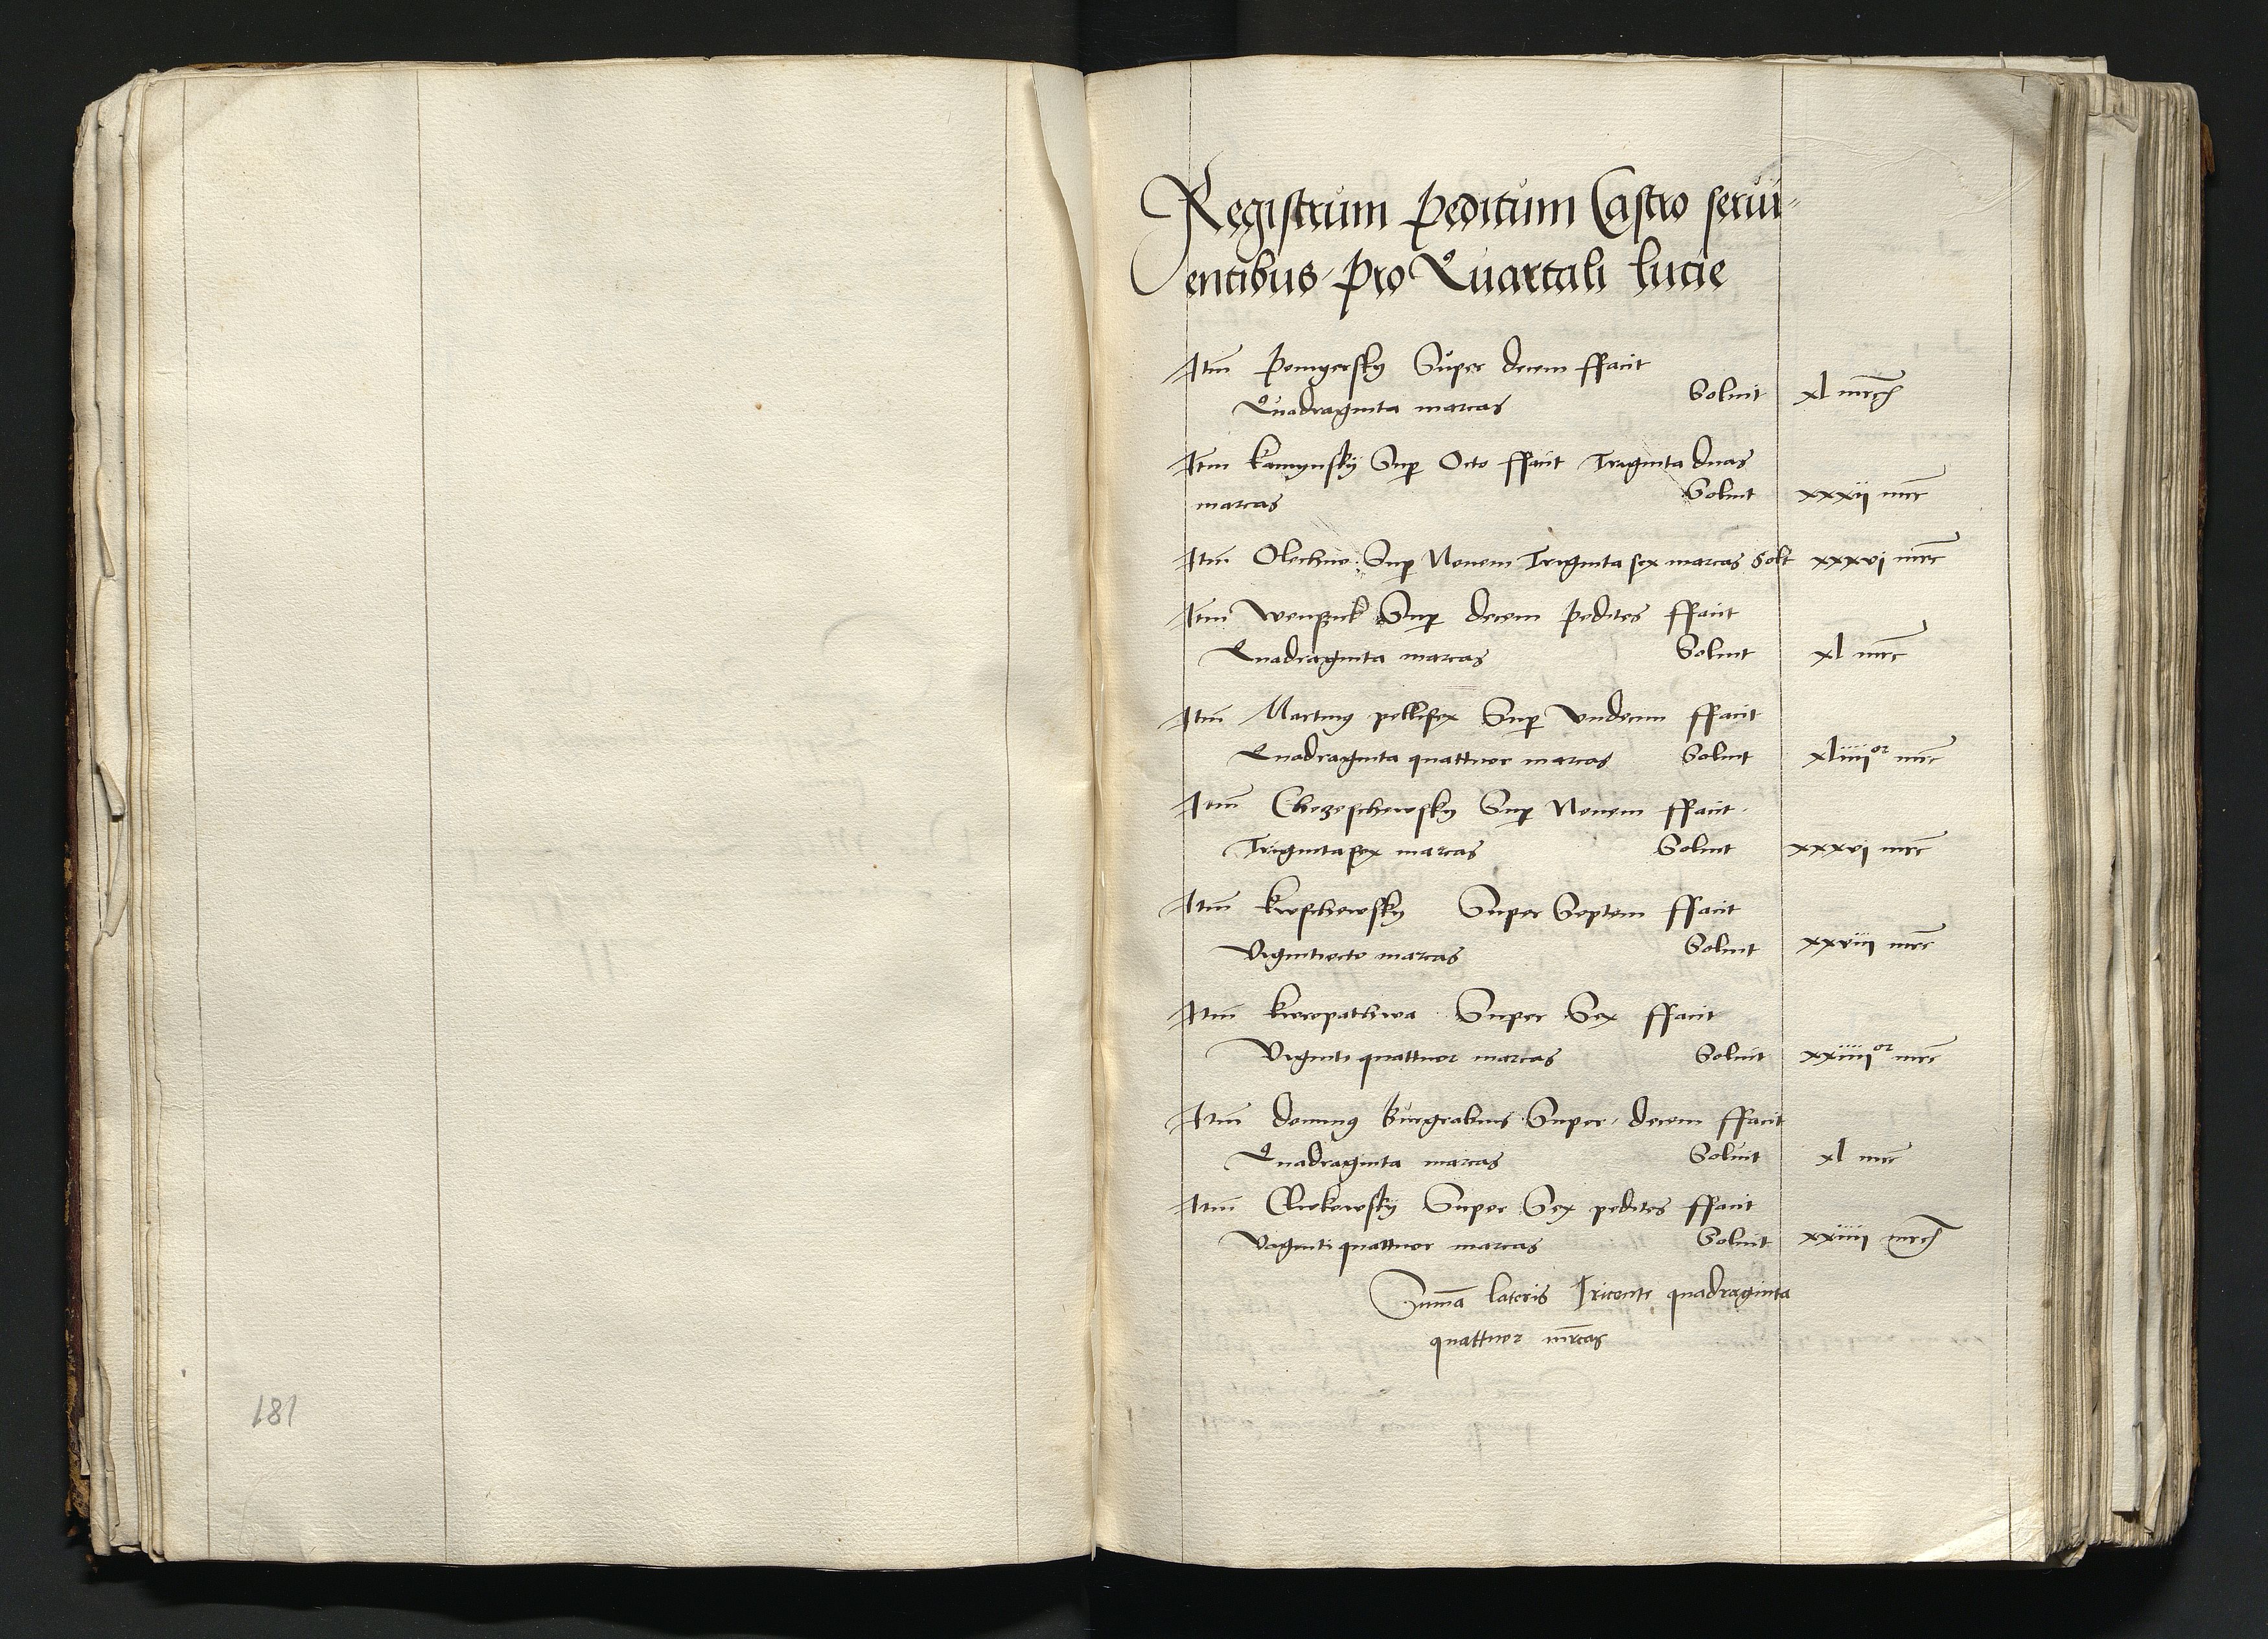 Registrum peditum Castro serui-
entibus pro Quartali lucie
Itm Pomgersky Super decem ffacit
Quadraginta marcas Soluit xl mrc
Itm kamynsky Sup Octo ffacit Triginta duas
marcas Soluit xxxij mrc
Itm Olechno Sup Nouem Triginta sex marcas Solt xxxvj mrc
Itm Sup decem pedites ffacit
Quadraginta marcas Soluit xl mrc
Itm Martinus pellifex Sup Vndecim ffacit
Quadraginta quattuor marcas Soluit xliiij or mrc
Itm Chezeschewsky Sup Nouem ffacit
Triginta sex marcas Soluit xxxvj mrc
Itm kroschewsky Super Septem ffacit
Vigintiocto marcas Soluit xxviij mrc
Itm kuropathwa Super Sex ffacit
Viginti quattuor marcas Soluit xxiiij or mrc
Itm dominus Burgrabius Super decem ffacit
Quadraginta marcas Soluit xl mrc
Itm Super Sex pedites ffacit
Viginti quattuor marcas Soluit xxiiij mrc
Suma lateris Tricente quadraginta
quattuor mrcas
181